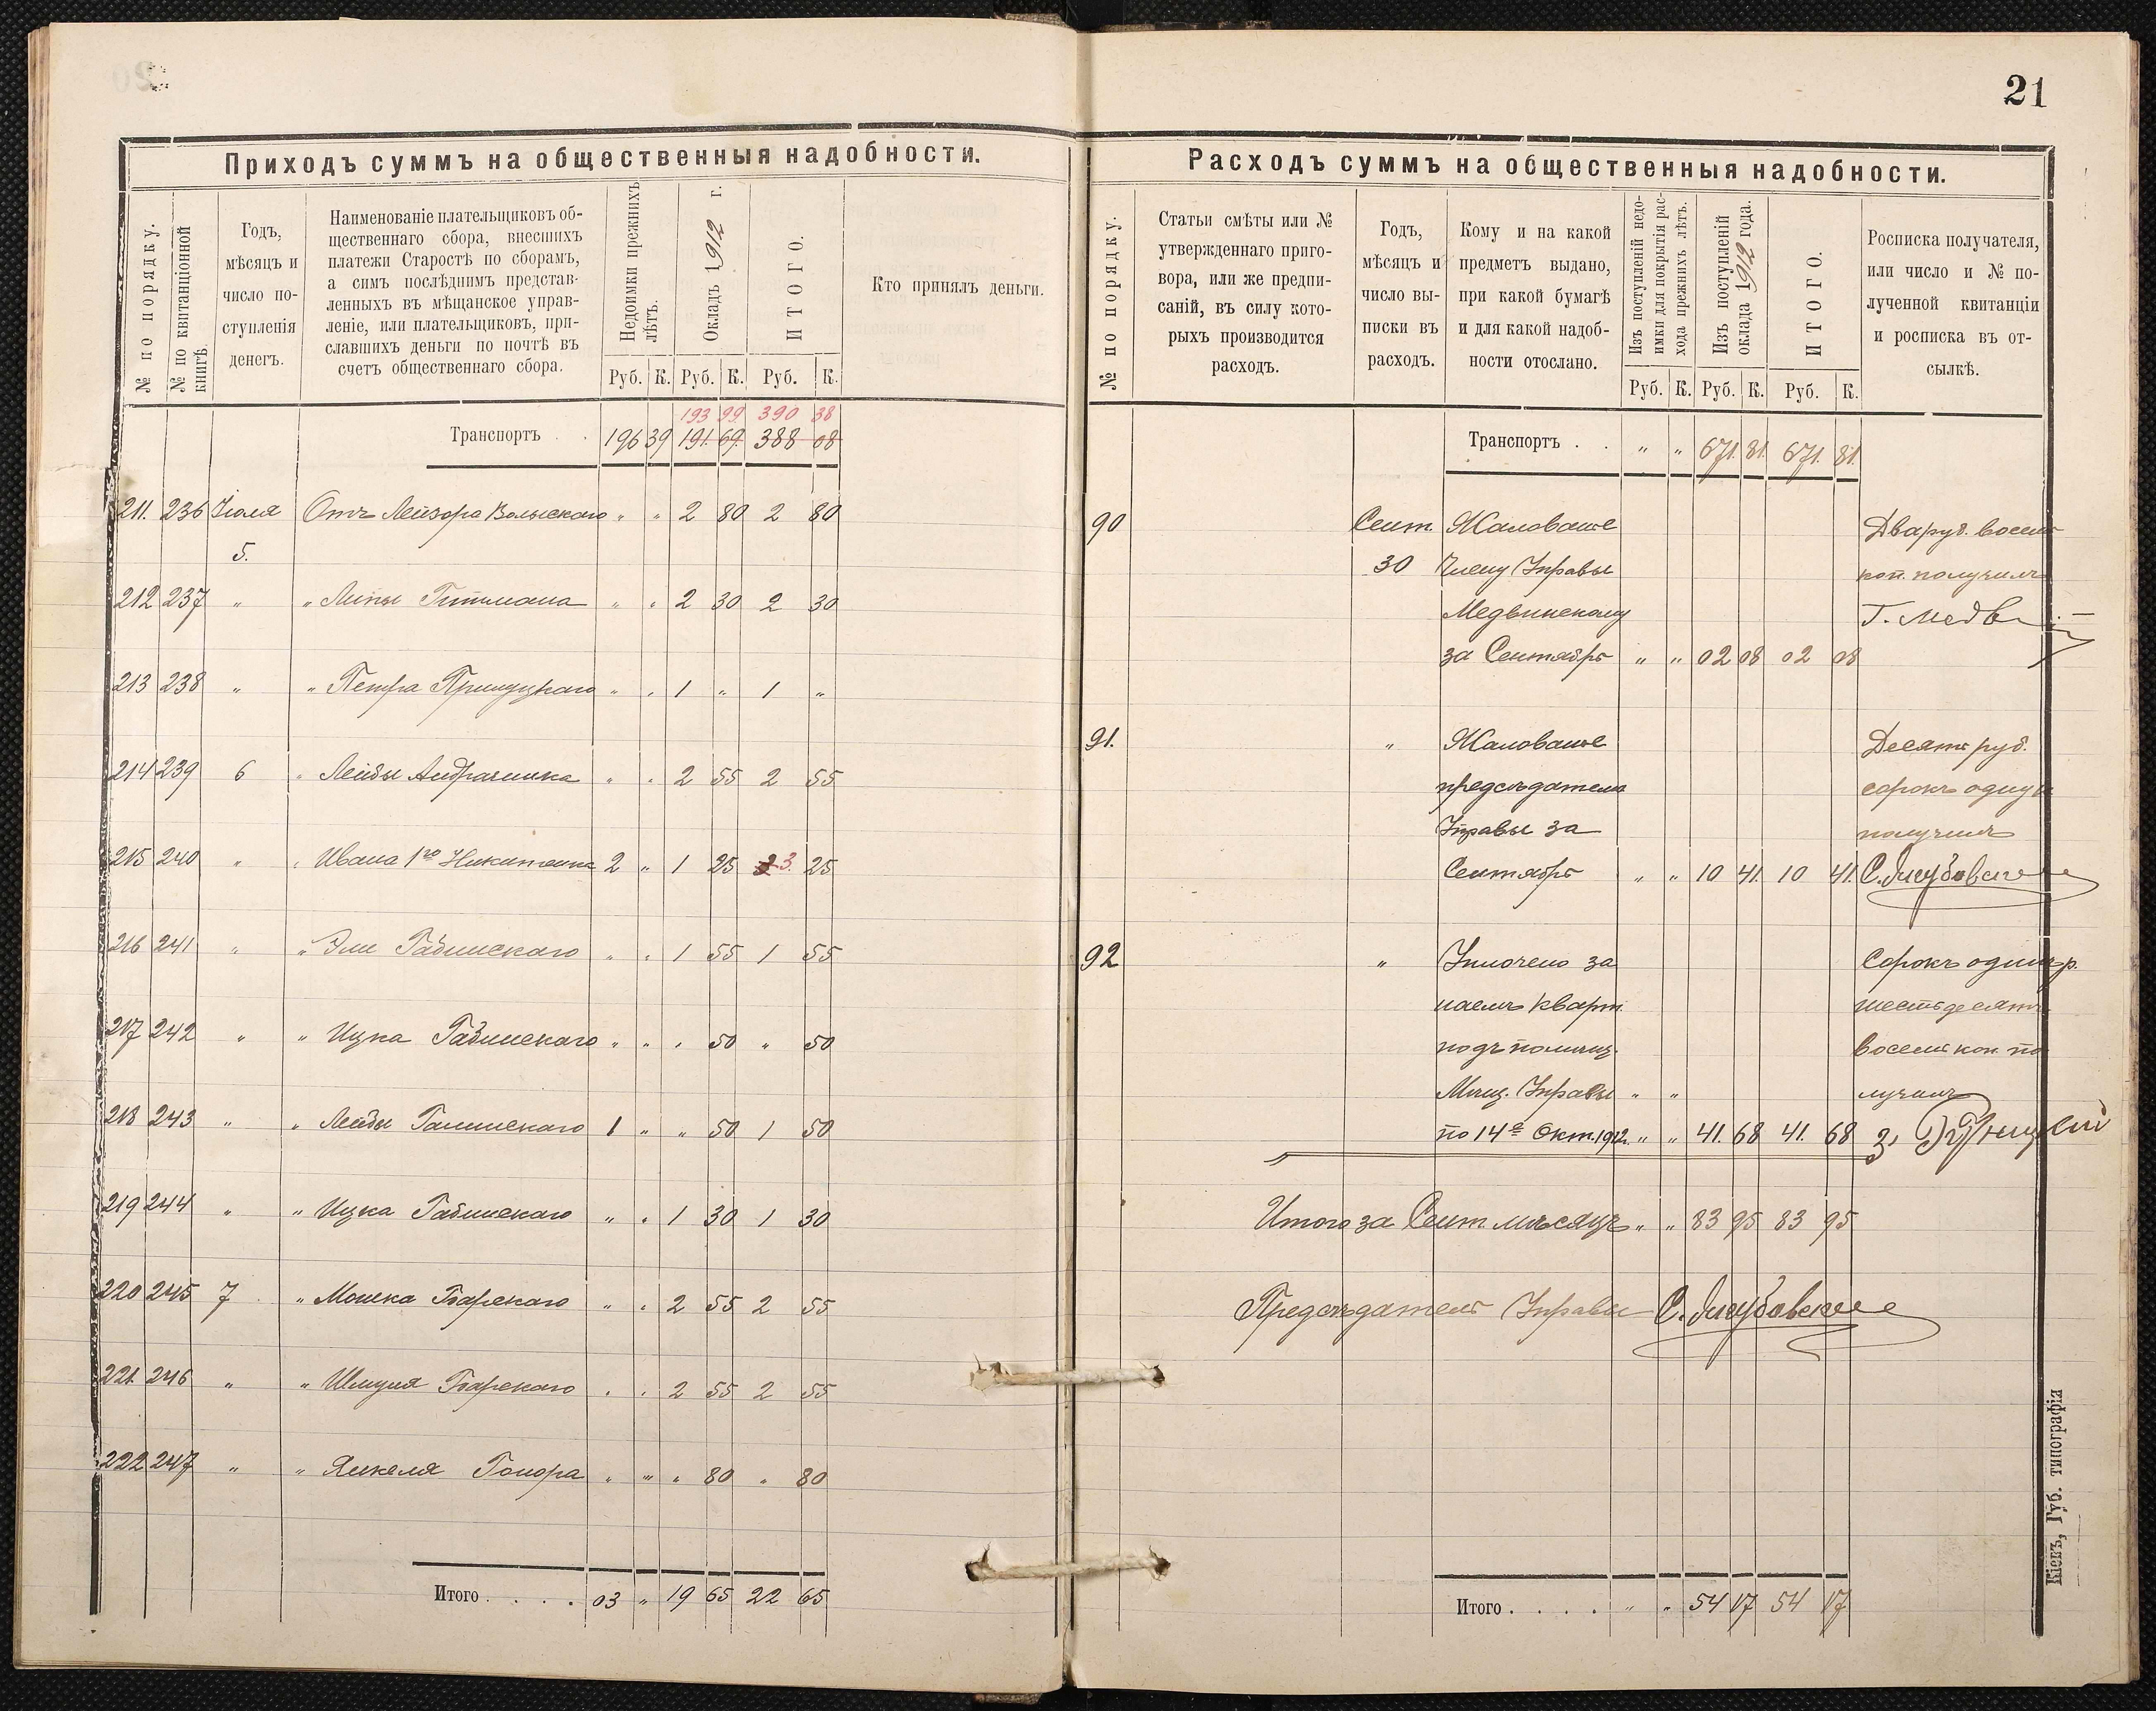 21
Приходъ суммъ на общественныя надобности.
№ по порядку.
№ по квитанціонной книгѣ.
Годъ,
мѣсяцъ и
число по-
ступленія
денегъ.
Наименованіе плательщиковъ об-
щественнаго сбора, внесшихъ
платежи Старостѣ по сборамъ,
а симъ послѣднимъ представ-
ленныхъ въ мѣщанское управ-
леніе, или плательщиковъ, при-
славшихъ деньги по почтѣ въ
счетъ общественнаго сбора.
Недоимки прежнихъ лѣтъ.
Окладъ 1912 г.
ИТОГО.
Кто принялъ деньги.
Руб. К. Руб. К. Руб. К.
193 99 390 38
Транспортъ . . 196 39 191. 69. 388 08
211. 236 Іюля Отъ Лейзора " " 2 80 2 80
5.
212 237 " " Липы Гитмана " " 2 30 2 30
213 238 " " Петра Прилуцкаго " " 1 " 1 "
214 239 6 " Лейбы " " 2 55 2 55
215 240 " " Ивана 1го Никитенка 2 " 1 25 3. 25
216 241 " " Эли Габинскаго " " 1 55 1 55
217 242 " " Ицка Габинскаго " " " 50 " 50
218 243 " " Лейбы 1 " " 50 1 50
219 244 " " Ицка Габинскаго " " 1 30 1 30
220 245 7 " Мошка Барскаго " " 2 55 2 55
221. 246 " " Шмуля Барскаго " " 2 55 2 55
222 247 " " Янкеля Гонора " " " 80 " 80
Итого . . . . 03 " 19 65 22 65
Расходъ суммъ на общественныя надобности.
№ по порядку.
Статьи смѣты или №
утвержденнаго приго-
вора, или же предпи-
саній, въ силу кото-
рыхъ производится
расходъ.
Годъ,
мѣсяцъ и
число вы-
писки въ
расходъ.
Кому и на какой
предметъ выдано,
при какой бумагѣ
и для какой надоб-
ности отослано.
Изъ поступленій недо-
имки для покрытія рас-
хода прежнихъ лѣтъ.
Изъ поступленій
оклада 1912 года.
ИТОГО.
Росписка получателя,
или число и № по-
лученной квитанціи
и росписка въ от-
сылкѣ.
Руб. К. Руб. К. Руб. К.
Транспортъ . . " " 671. 81. 671. 81.
90 Сент. Жалованье Два руб. восемь
30 Члену Управы коп. получилъ
Медвинскому Г. Медв
за Сентябрь " " 02 08 02 08
91. " Жалованье Десять руб.
предсѣдателю сорокъ одну к
Управы за получилъ
Сентябрь " " 10 41. 10 41.
92 " Уплочено за Сорокъ одинъ р.
наемъ кварт. шестьдесятъ
подъ помѣщ. восемь коп. по
Мѣщ. Управы " " лучилъ
по 14е Окт. 1912. " " 41. 68 41. 68
Итого за Сент. мѣсяцъ " " 83 95 83 95
Предсѣдатель Управы
Итого . . . . " " 54 17 54 17
Кіевъ, Губ. типографія